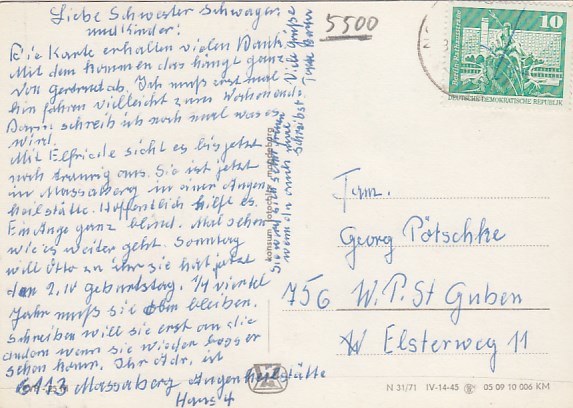 Liebe Schwester Schwager
und Kinder!
Die Karte erhalten vielen Dank.
Mit dem Kommen das hängt ganz
von Gertrud ab. Ich muß erst mal
hin fahren vielleicht zum Wochenende.
Dann schreib ich noch mal was es
wird.
Mit Elfriede sieht es bis jetzt
noch traurig aus. Sie ist jetzt
in Massaberg in einer Augen
heilstätte. Hoffentlich hilft es.
Ein Auge ganz blind. Mal sehen
wie es weiter geht. Sonntag
will Otto zu ihr sie hat jetzt
den 2,10 Geburtstag. 1/4 viertel
Jahr muß sie bleiben.
Schreiben will sie erst an die
andern wenn sie wieder besser
sehen kann. Ihr Adr. ist
6113 Massaberg Augenheilstätte
Haus 4
Viele Grüße
wenn du auch mal
schreibst
5500
10
DEUTSCHE DEMOKRATISCHE REPUBLIK
konsum fotocolor magdeburg
Fam.
Georg Pötschke
756 W. P. St Guben
Elsterweg 11
N 31/71 IV-14-45 05 09 10 006 KM